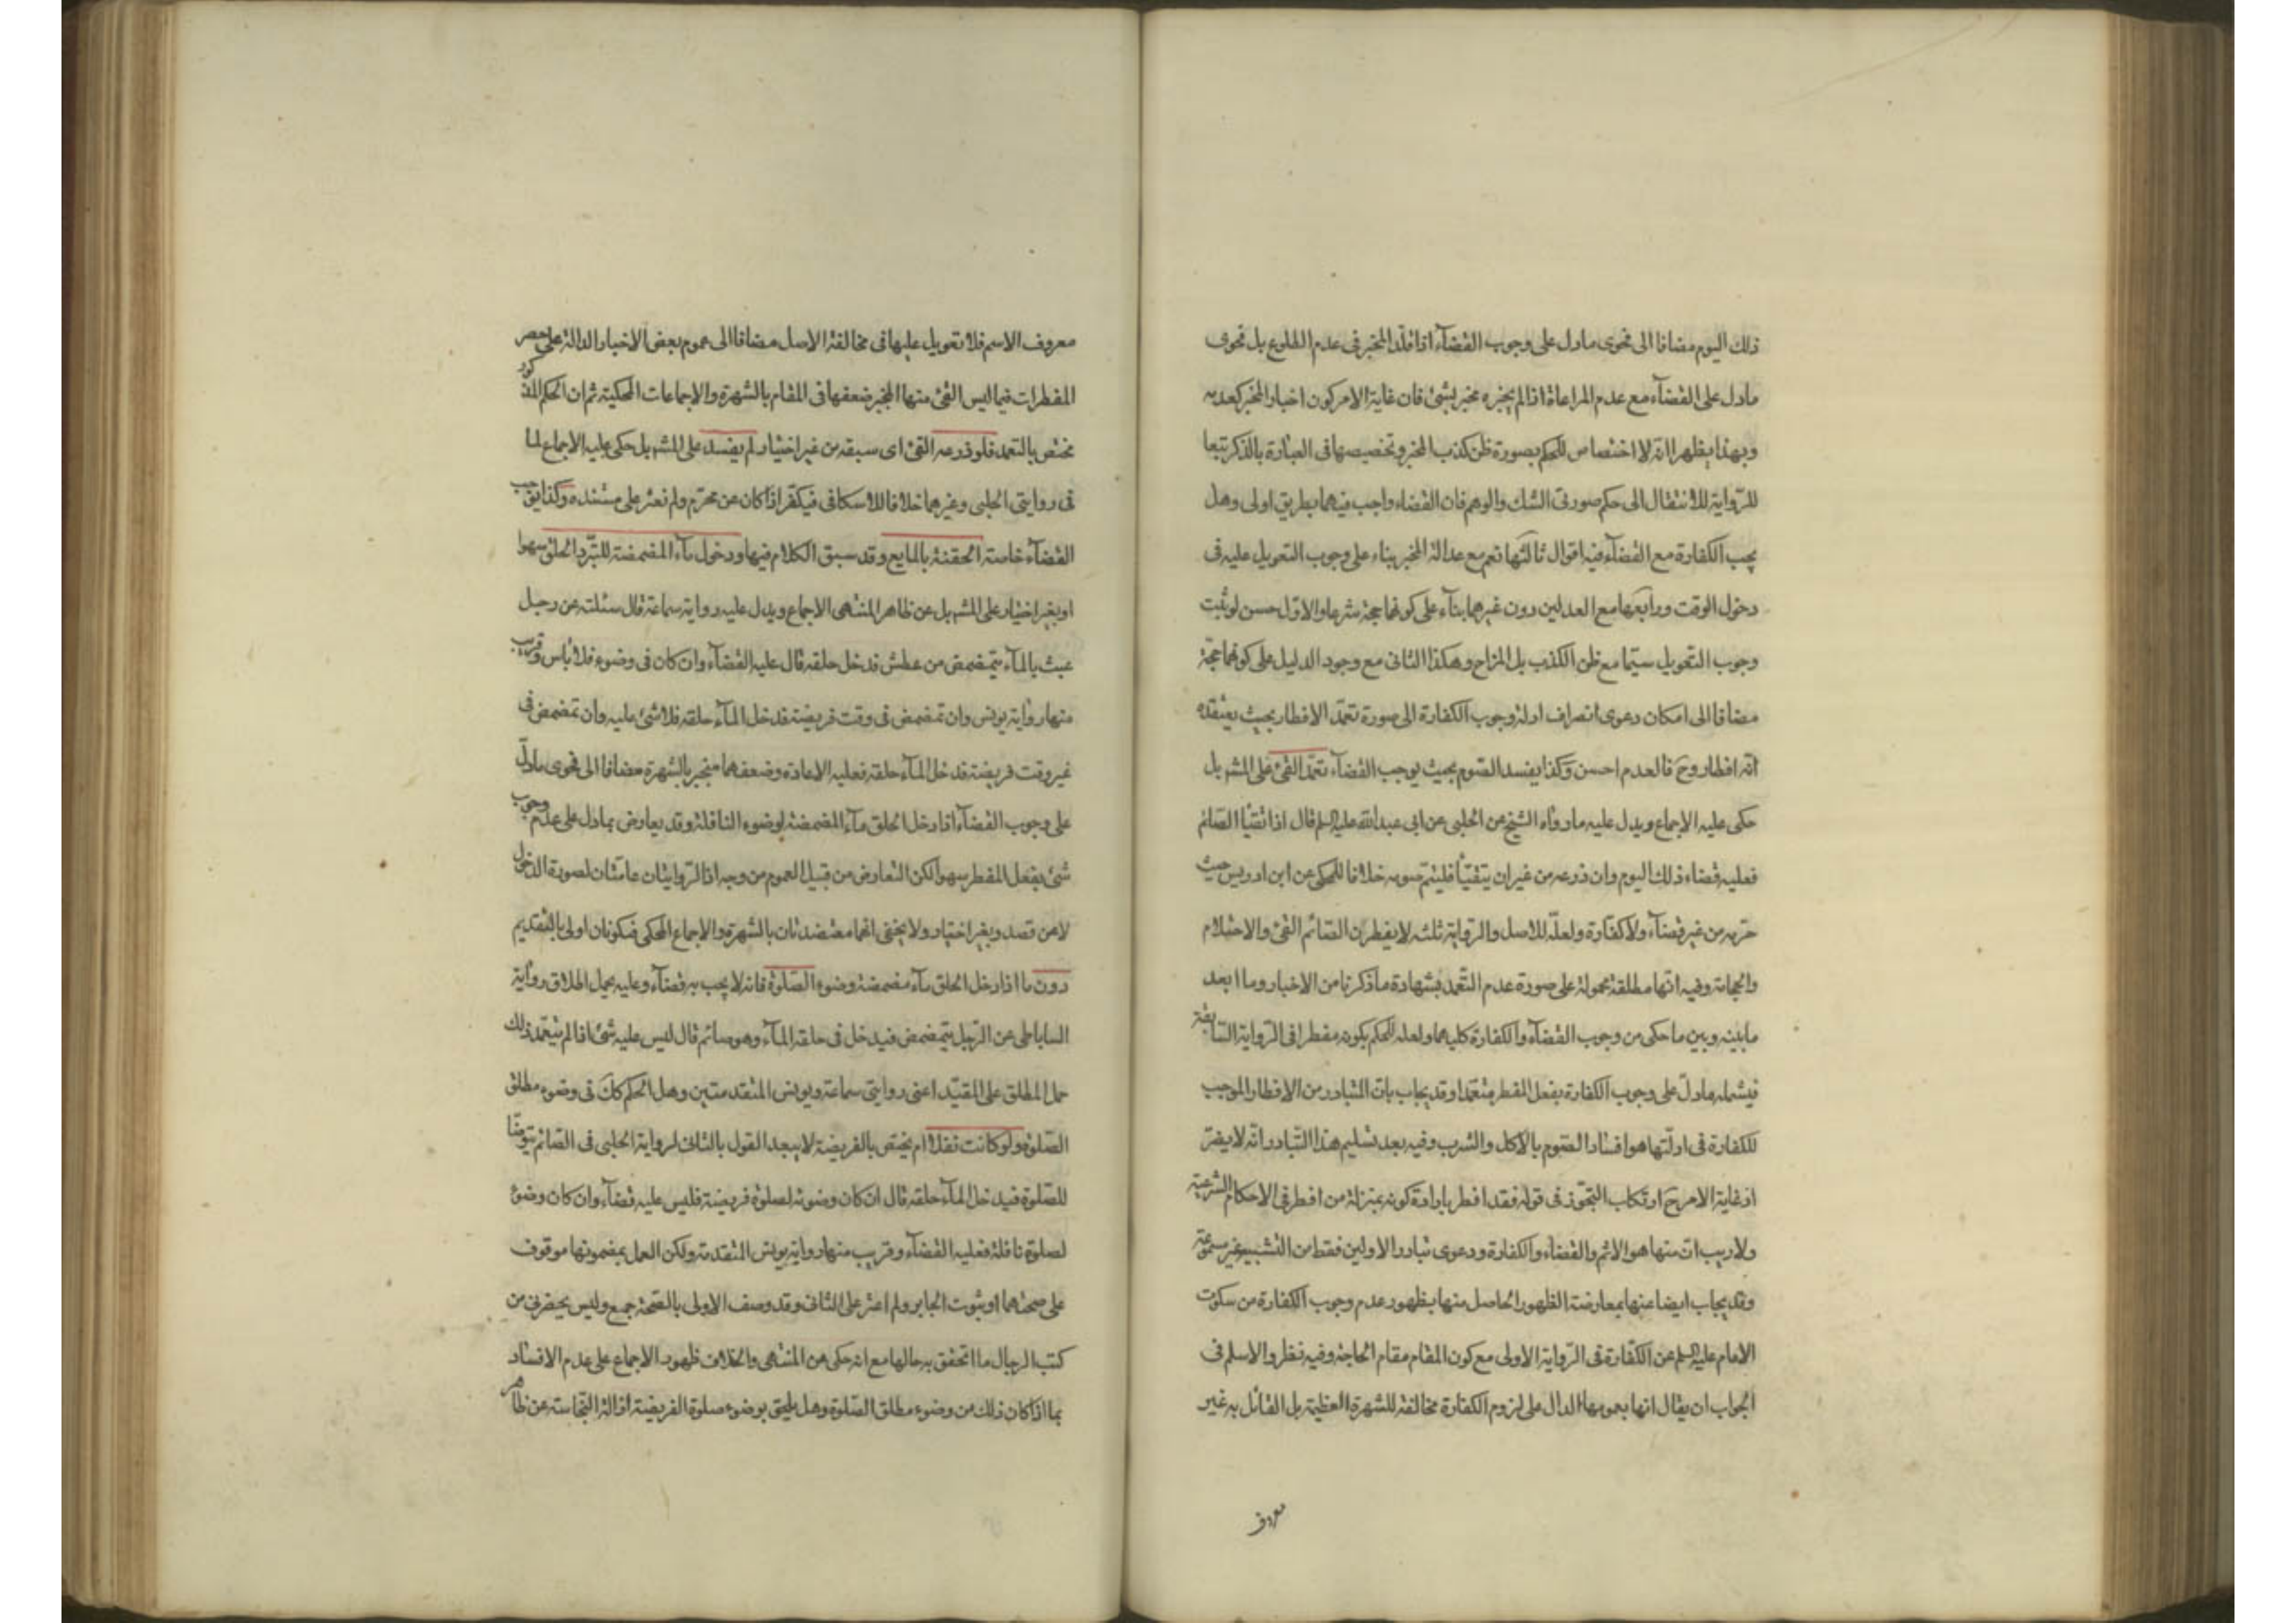 ذلك اليوم مضافا الى فحوى مادل على وجوب القضآء اذا قلّد المخبر فى عدم الطلوع بل فحوى
مادل على القضآء مع عدم المراعاة اذا لم يخبره مخبر بشئ فان غاية الامر كون اخبار المخبر كعدمه
وبهذا يظهر انه لا اختصاص للحكم بصورة ظن كذب المخبر وتخصيصها فى العبارة بالذكر تبعا
للرّواية للانتقال الى حكم صورتى الشك والوهم فان القضاء واجب فيهما بطريق اولى وهل
يجب الكفارة مع القضآء فيه اقوال ثالثها نعم مع عدالة المخبر بناء على وجوب التعويل عليه فى
دخول الوقت ورابعها مع العدلين دون غيرهما بنآء على كونهما حجة شرعا والاوّل حسن لو ثبت
وجوب التعويل سيّما مع ظن الكذب بل المزاح وهكذا الثانى مع وجود الدليل على كونهما حجّة
مضافا الى امكان دعوى انصراف ادلة وجوب الكفارة الى صورة تعمّد الافطار بحيث يعتقده
انّه افطار وح فالعدم احسن وكذا يفسد الصّوم بحيث يوجب القضآء تعمّد القئ على المشهـ بل
حكى عليه الاجماع ويدل عليه مارواه الشيخ عن الحلبى عن ابى عبدالله عليه السلم قال اذا تقيّأ الصّائم
فعليه قضاء ذلك اليوم وان ذرعه من غير ان يتقيّأ فليتمّ صومه خلافا للمحكى عن ابن ادريس حيث
حرّمه من غير قضآء ولا كفّارة ولعلّه للاصل والرّواية ثلثه لا يفطرن الصّائم القئ والاحتلام
والحجامة وفيه انّها مطلقة محمولة على صورة عدم التّعمد بشهادة ماذكرنا من الاخبار وما ابعد
مابينه وبين ماحكى من وجوب القضآء والكفارة كليهما ولعله للحكم بكونه مفطرا فى الرّواية السّابقة
فيشمله مادلّ على وجوب الكفارة بفعل المفطر متعمّدا وقد يجاب بان المتبادر من الافطار الموجب
للكفارة فى ادلّتها هو افساد الصّوم بالاكل والشرب وفيه بعد تسليم هذا التّبادر انّه لا يضرّ
اذ غاية الامر ح ارتكاب التجوّز فى قوله فقد افطر بارادة كونه بمنزلة من افطر فى الاحكام الشرعيّة
ولاريب انّ منها هو الاثم والقضاء والكفارة ودعوى تبادر الاولين فقط من التشبيه غير مسموعة
وقد يجاب ايضا عنها بمعارضة الظهور الحاصل منها بظهور عدم وجوب الكفارة من سكوت
الامام عليه السلم عن الكفّارة فى الرّواية الاولى مع كون المقام مقام الحاجة وفيه نظر والاسلم فى
الجواب ان يقال انها بعمومها الدال على لزوم الكفارة مخالفة للشهرة العظيمة بل القائل به غير
معروف
معروف الاسم فلا تعويل عليها فى مخالفة الاصل مضافا الى عموم بعض الاخبار الدالة على حصر
المفطرات فيما ليس القئ منها المنجبر ضعفها فى المقام بالشهرة والاجماعات المحكية ثم ان الحكم المذكور
مختص بالتعمد فلو ذرعه القئ اى سبقه من غير اختيار لم يفسد على المشهـ بل حكى عليه الاجماع لما
فى روايتى الحلبى وغيرهما خلافا للاسكافى فيكفّر اذا كان عن محرّم ولم نعثر على مستنده وكذا يوجب
القضآء خاصة الحقنة بالمايع وقد سبق الكلام فيها ودخول مآء المضمضة للتبّرد الحلق سهوا
او بغير اختيار على المشهـ بل عن ظاهر المنتهى الاجماع ويدل عليه رواية سماعة قال سئلته عن رجل
عبث بالمآء يتمضمض من عطش فدخل حلقه قال عليه القضآء وان كان فى وضوء فلا باس وقريب
منها رواية يونس وان تمضمض فى وقت فريضة فدخل المآء حلقه فلا شئ عليه وان تمضمض فى
غير وقت فريضة فدخل المآء حلقه فعليه الاعادة وضعفهما منجبر بالشهرة مضافا الى فحوى مادلّ
على وجوب القضآء اذا دخل الحلق مآء المضمضة لوضوء النافلة وقد يعارض بمادل على عدم وجوب
شئ بفعل المفطر سهوا لكن التعارض من قبيل العموم من وجه اذ الرّوايتان عامّتان لصورة الدخول
لاعن قصد وبغير اختيار ولا يخفى انهما معتضدتان بالشهرة والاجماع المحكى فتكونان اولى بالتقديم
دون ما اذا دخل الحلق مآء مضمضة وضوء الصّلوة فانه لا يجب به قضآء وعليه يحمل اطلاق رواية
الساباطى عن الرّجل يتمضمض فيدخل فى حلقه المآء وهو صائم قال ليس عليه شئ اذا لم يتعمّد ذلك
حمل المطلق على المقيّد اعنى روايتى سماعة ويونس المتقدمتين وهل الحكم كك فى وضوء مطلق
الصّلوة ولو كانت نفلا ام يختص بالفريضة لا يبعد القول بالثانى لرواية الحلبى فى الصّائم يتوضّأ
للصّلوة فيدخل المآء حلقه قال ان كان وضوئه لصلوة فريضة فليس عليه قضآء وان كان وضوئ
لصلوة نافلة فعليه القضآء وقريب منها رواية يونس المتقدمة ولكن العمل بمضمونها موقوف
على صحتهما او ثبوت الجابر ولم اعثر على الثانى وقد وصف الاولى بالصّحة جمع وليس يحضرنى من
كتب الرجال ما اتحقق به حالها مع انه حكى عن المنتهى والخلاف ظهور الاجماع على عدم الافساد
بما اذا كان ذلك من وضوء مطلق الصّلوة وهل يلحق بوضوء صلوة الفريضة ازالة النّجاسة عن ظاهر